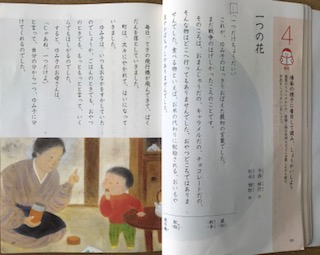 4
場面の様子に着目して読み、しょうかいしよう
一つの花
今西祐行 作
「一つだけちょうだい。」
これが、ゆみ子のはっきりおぼえた最初の言葉でした。
まだ戦争のはげしかったころのことです。
そのころは、おまんじゅうだの、キャラメルだの、チョコレートだの、
そんな物はどこへ行ってもありませんでした。おやつどころではありま
せんでした。食べる物といえば、お米の代わりに配給される、おいもや
毎日、てきの飛行機が飛んできて、ばく
だんを落としていきました。
町は、次々にやかれて、はいになって
いきました。
ゆみ子は、いつもおなかをすかしていた
のでしょうか。ご飯のときでも、おやつ
のときでも、もっともっとと言って、い
くらでもほしがるのでした。
すると、ゆみ子のお母さんは、
「じゃあね、一つだけよ。」
と言って、自分の分から一つ、ゆみ子に分
けてくれるのでした。